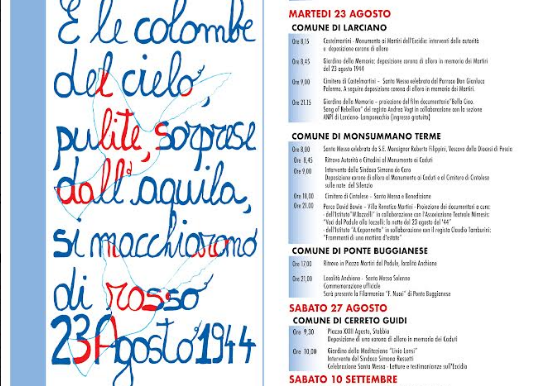 E le colombe
del cielo,
pulite, sorprese
dall'aquila,
si macchiarono
di rosso
23 Agosto 1944
MARTEDI 23 AGOSTO
COMUNE DI LARCIANO
Ore 8,15 Castelmartini - Monumento ai Martiri dell'Eccidio: interventi delle autorità
e deposizione corona di alloro
Ore 8,45 Giardino della Memoria: deposizione corona di alloro in memoria dei Martiri
del 23 agosto 1944
Ore 9,00 Cimitero di Castelmartini - Santa Messa celebrata dal Parroco Don Gianluca
Palermo. A seguire deposizione corona di alloro in memoria dei Martiri.
Ore 21,15 Giardino della Memoria - proiezione del film documentario "Bella Ciao.
Song of Rebellion" della regista Andrea Vogt in collaborazione con la sezione
ANPI di Larciano- Lamporecchio (ingresso gratuito)
COMUNE DI MONSUMMANO TERME
Ore 8,00 Santa Messa celebrata da S.E. Monsignor Roberto Filippini, Vescovo della Diocesi di Pescia
Ore 8,45 Ritrovo Autorità e Cittadini al Monumento ai Caduti
Ore 9,00 Intervento della Sindaca Simona De Caro
Deposizione corona di alloro al Monumento ai Caduti e al Cimitero di Cintolese
sulle note del Silenzio
Ore 18,00 Cimitero di Cintolese - Santa Messa e Benedizione
Ore 21,00 Parco David Bowie - Villa Renatico Martini - Proiezione dei documentari a cura:
- dell'Istituto "M.Bozzelli" in collaborazione con l'Associazione Teatrale Nemesis:
"Voci dal Padule alla Jaczelli: la notte del 23 agosto del '44"
- dell'Istituto "A.Caponnetto" in collaborazione con il regista Claudio Tamburini:
"Frammenti di una mattina d'estate"
COMUNE DI PONTE BUGGIANESE
Ore 17,00 Ritrovo in Piazza Martiri del Padule, località Anchione
Ore 21,00 Località Anchione - Santa Messa Solenne
Commemorazione ufficiale
Sarà presente la Filarmonica "F. Nucci" di Ponte Buggianese
SABATO 27 AGOSTO
COMUNE DI CERRETO GUIDI
Ore 9,30 Piazza XXIII Agosto, Stabbia
Deposizione di una corona di alloro in memoria dei Caduti
Ore 10,00 Giardino della Meditazione "Livio Lensi"
Intervento del Sindaco Simona Rossetti
Celebrazione Santa Messa - Letture e testimonianze sull'Eccidio
SABATO 10 SETTEMBRE